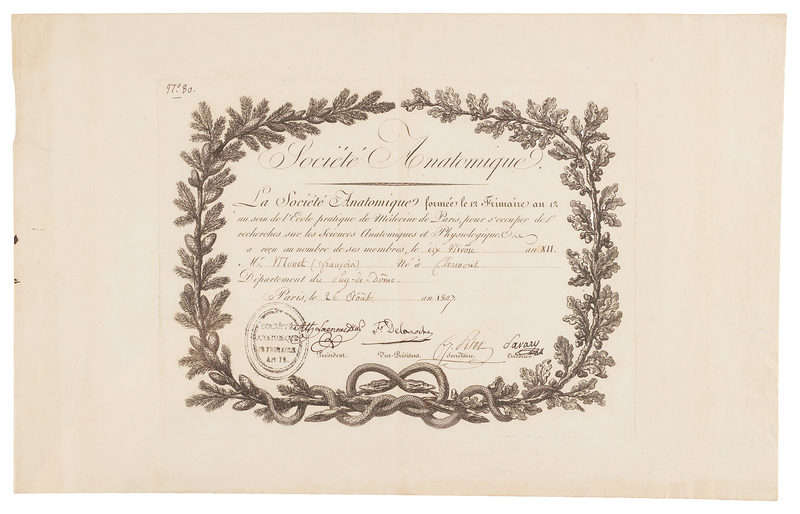 Nº 80.
Société Anatomique.
La Société Anatomique formée le 12 Frimaire an 12
au sein de l'École pratique de Médecine de Paris, pour s'occuper de
recherches sur les Sciences Anatomiques et Physiologiques
a reçu au nombre de ses membres, le ix Nivôse an XII.
Mr. Monet (françois) Né à Clermont
Département du Puy-de-Dôme
Paris, le 26 Août an 1807
SOCIÉTÉ
ANATOMIQUE
12 FRIMAIRE
AN 12.
Laennec Fs. Delaroche Savary
Président. Vice-Président. Secrétaire.